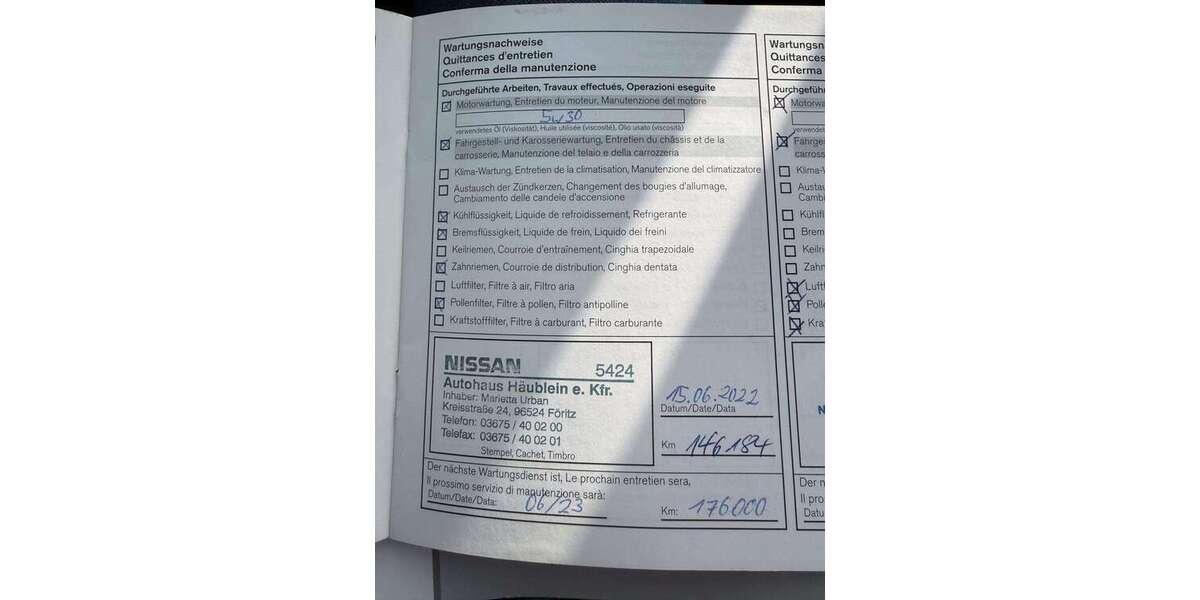 Wartungsnachweise
Quittances d'entretien
Conferma della manutenzione
Durchgeführte Arbeiten, Travaux effectués, Operazioni eseguite
Motorwartung, Entretien du moteur, Manutenzione del motore
5w30
verwendetes Öl (Viskosität), Huile utilisée (viscosité), Olio usato (viscosità)
Fahrgestell- und Karosseriewartung, Entretien du châssis et de la
carrosserie, Manutenzione del telaio e della carrozzeria
Klima-Wartung, Entretien de la climatisation, Manutenzione del climatizzatore
Austausch der Zündkerzen, Changement des bougies d'allumage,
Cambiamento delle candele d'accensione
Kühlflüssigkeit, Liquide de refroidissement, Refrigerante
Bremsflüssigkeit, Liquide de frein, Liquido dei freini
Keilriemen, Courroie d'entraînement, Cinghia trapezoidale
Zahnriemen, Courroie de distribution, Cinghia dentata
Luftfilter, Filtre à air, Filtro aria
Pollenfilter, Filtre à pollen, Filtro antipolline
Kraftstofffilter, Filtre à carburant, Filtro carburante
NISSAN 5424
Autohaus Häublein e. Kfr.
Inhaber: Marietta Urban
Kreisstraße 24, 96524 Föritz
Telefon: 03675 / 40 02 00
Telefax: 03675 / 40 02 01
Stempel, Cachet, Timbro
15.06.2022
Datum/Date/Data
Km 146184
Der nächste Wartungsdienst ist, Le prochain entretien sera,
Il prossimo servizio di manutenzione sarà:
Datum/Date/Data: 06/23
Km: 176000
Wartungsn
Quittances
Conferma
Durchgeführt
Motorwa
verwendete
Fahrge
carross
Klima-W
Austau
Camb
Kühlfl
Brem
Keilri
Zahn
Luft
Poll
Kra
N
Der n
Il pro
Datu